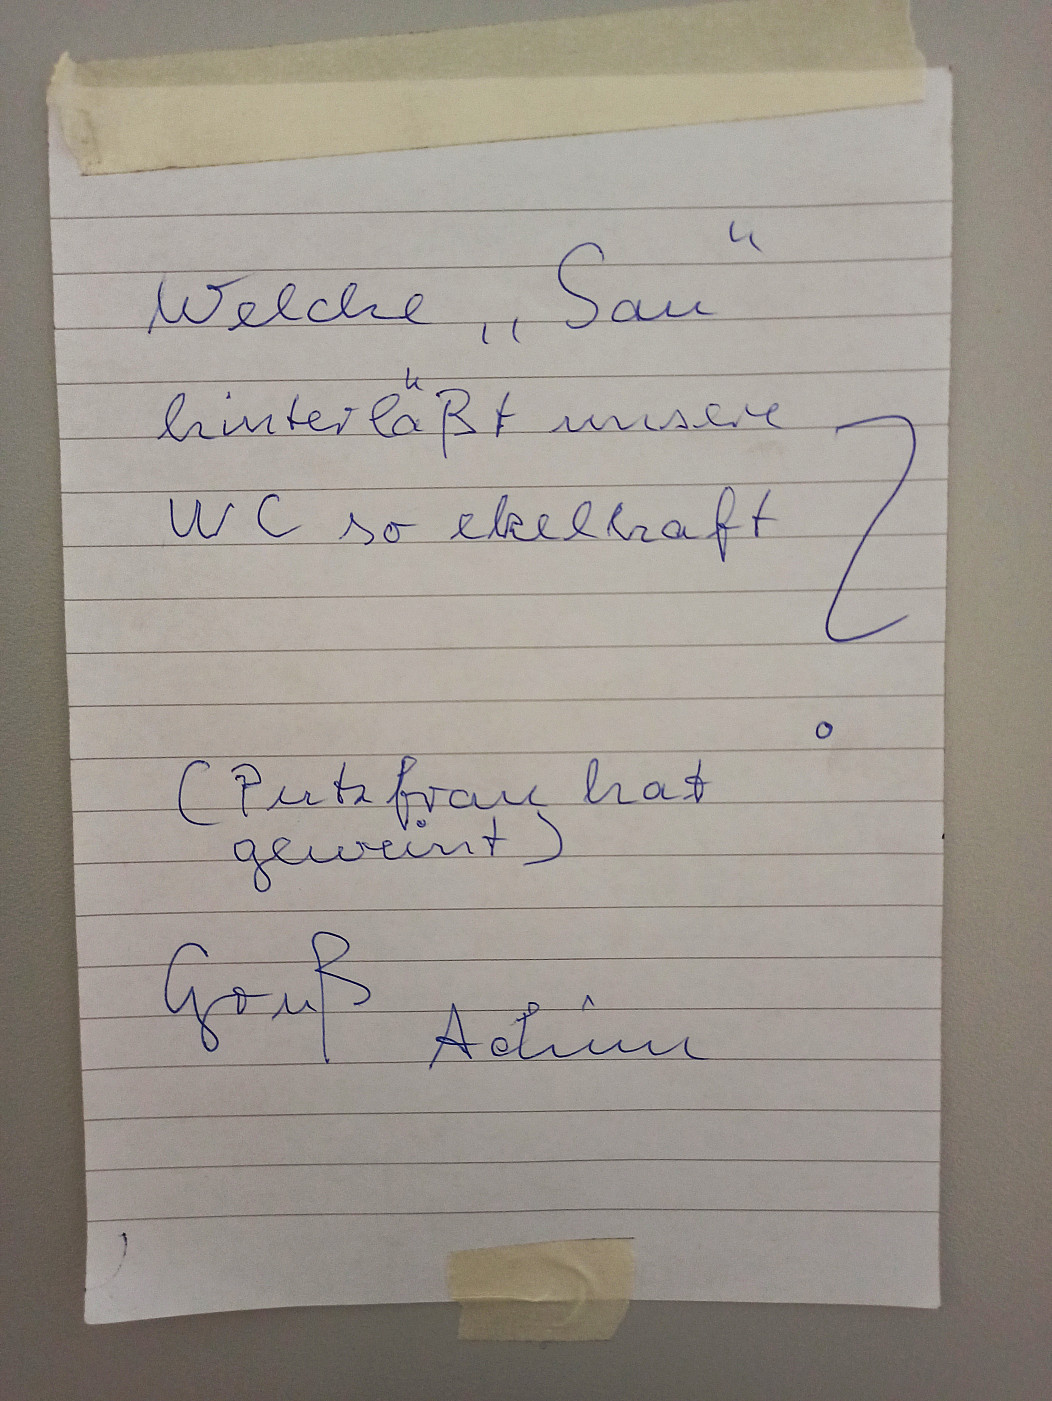 Welche „Sau“
hinterläßt unsere
WC so ekelhaft ?
(Putzfrau hat
geweint)
Gruß
Achim